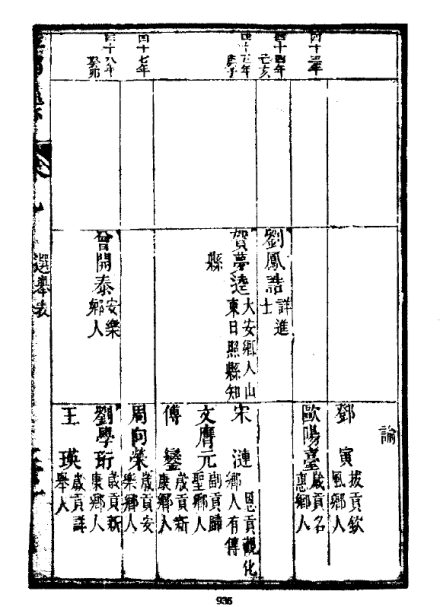 諭
四十三年
鄧寅 拔貢欽風鄉人
歐陽臺 歲貢名惠鄉人
四十四年己亥
劉鳳誥 詳進士
四十五年庚子
賀夢逵 大安鄉人山東日照縣知縣
宋漣 恩貢觀化鄉人有傳
文膺元 副貢歸聖鄉人
傅鑾 歲貢新康鄉人
四十七年
周向榮 歲貢安樂鄉人
四十八年癸卯
曾開泰 安樂鄉人
劉學珩 歲貢新康鄉人
王瑛 歲貢詳舉人
選舉表
935